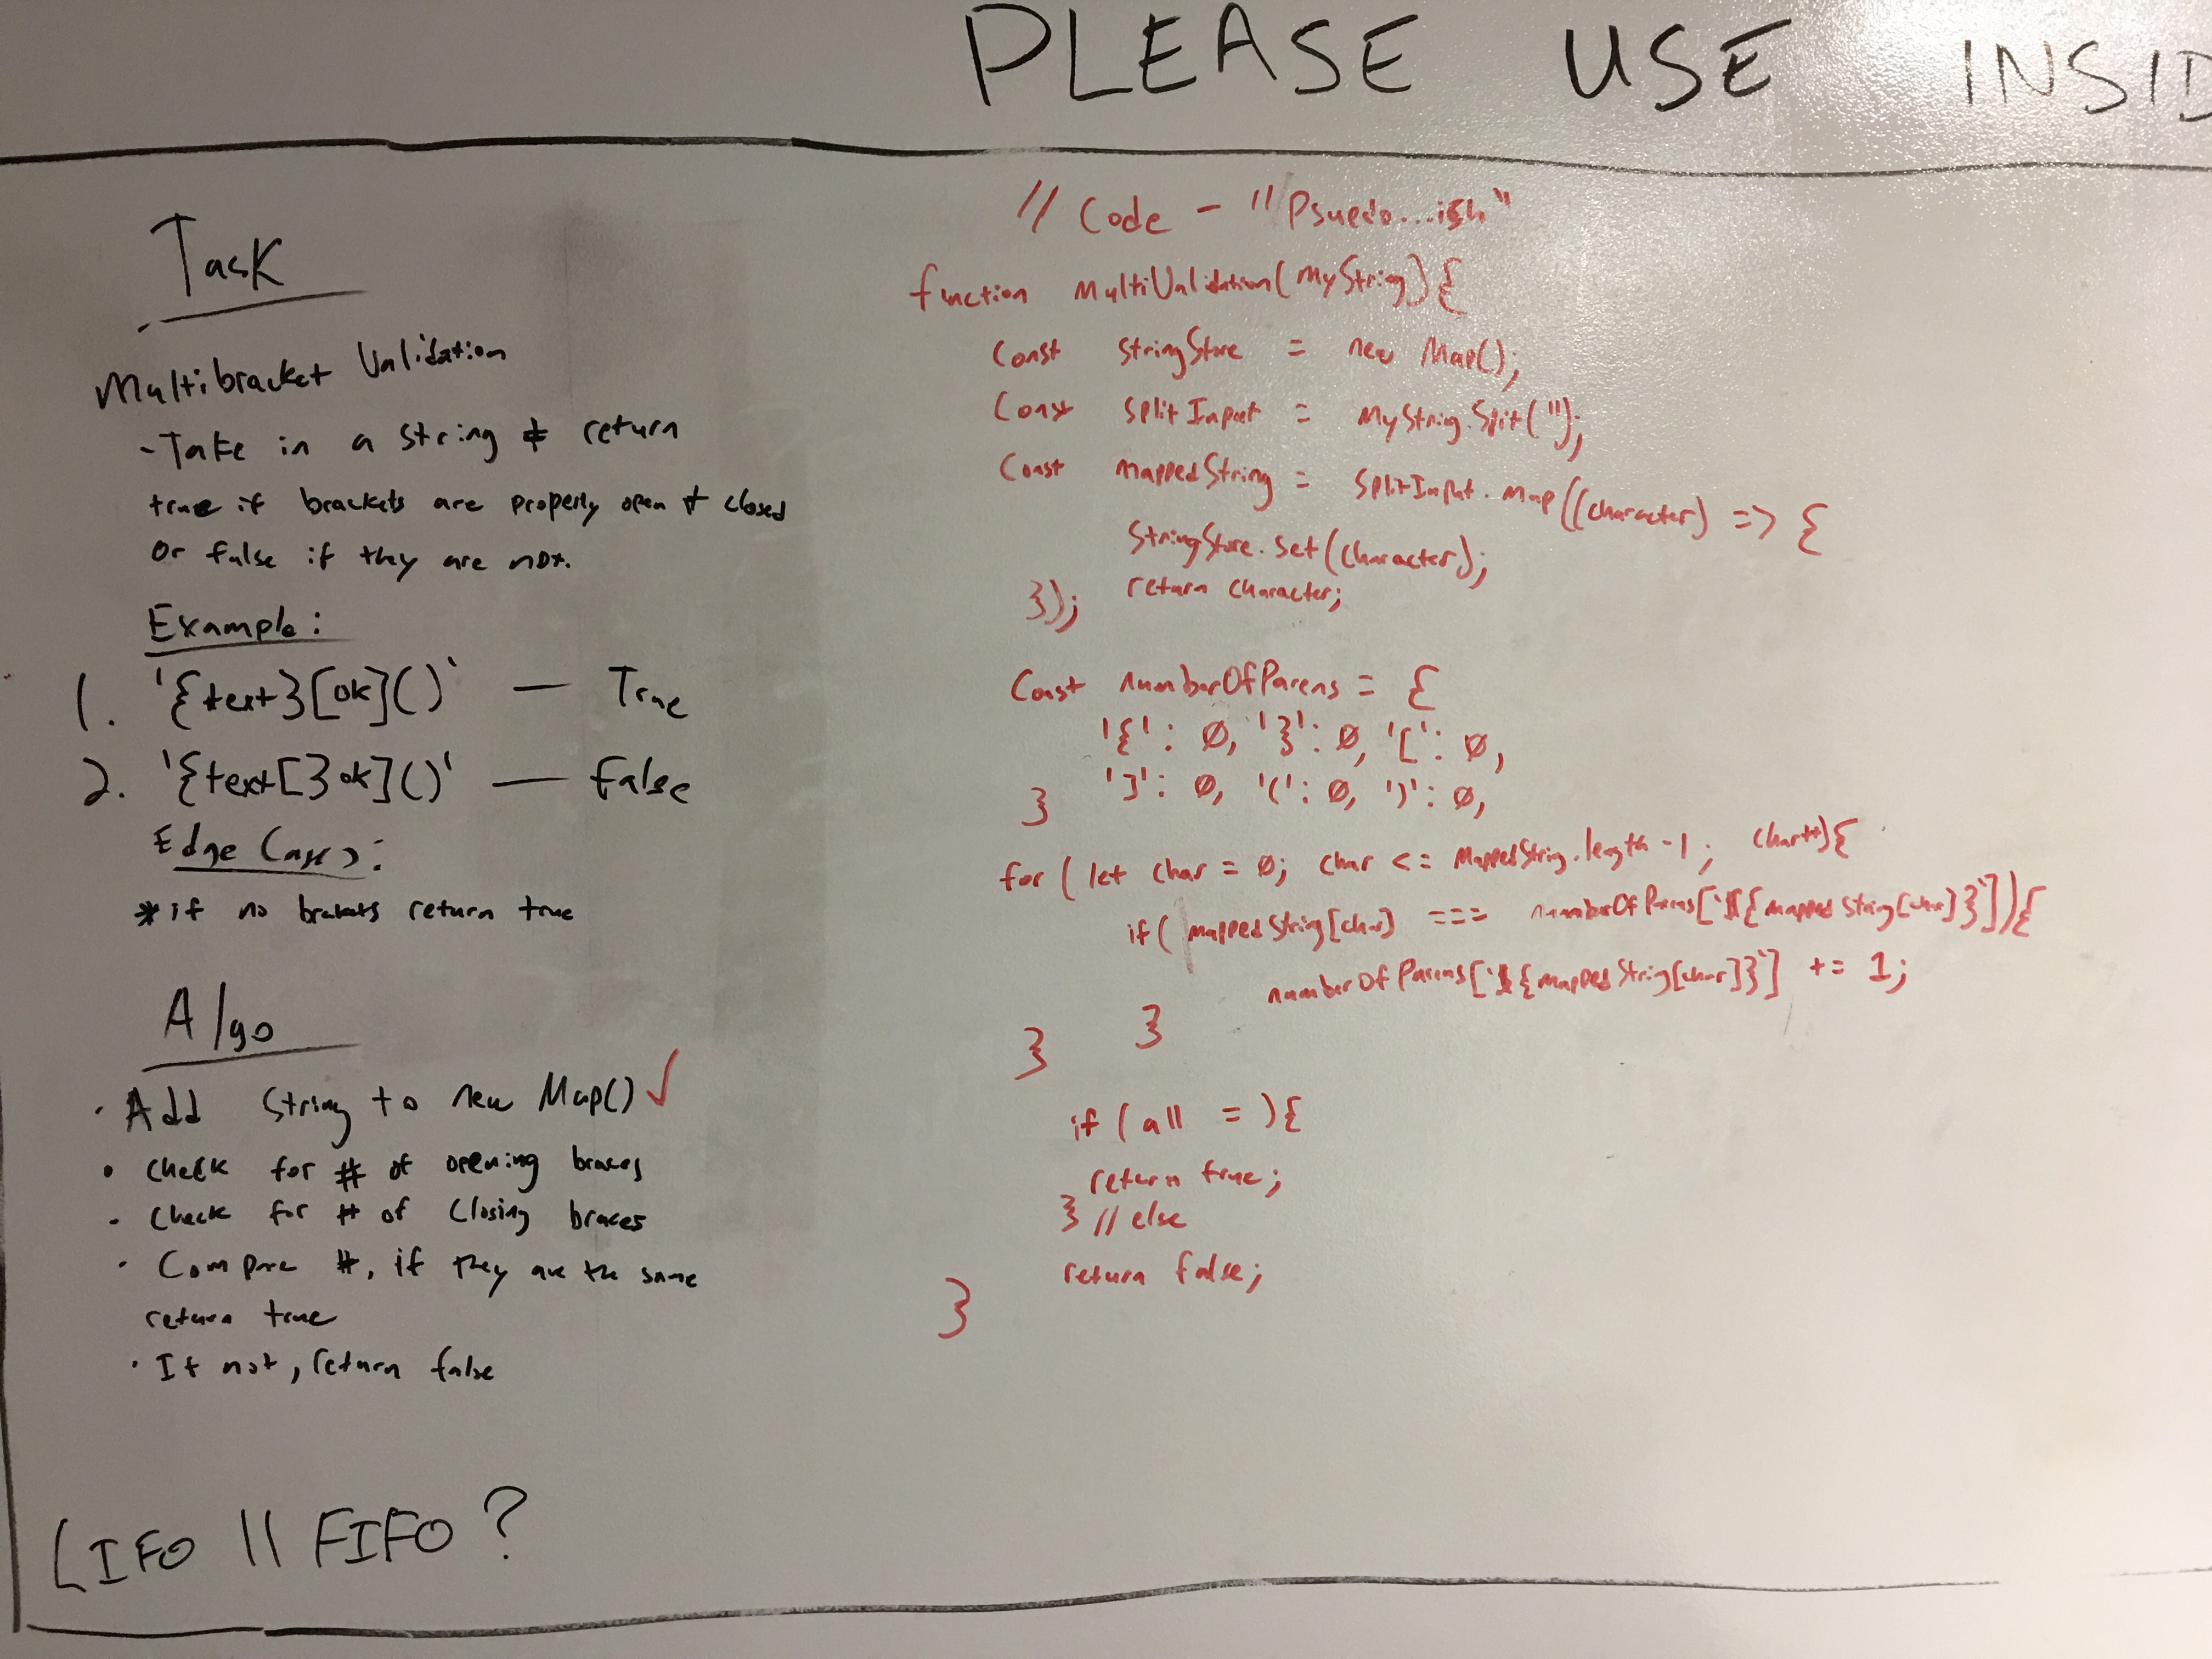 PLEASE USE INSID
Task
Multibracket Validation
- Take in a string & return
true if brackets are properly open & closed
or false if they are not.
Example:
1. '{text}[ok]()` — True
2. '{text[}ok]()' — False
Edge Cases:
* if no brackets return true
Algo
· Add string to new Map() ✓
· Check for # of opening braces
· Check for # of closing braces
· Compare #, if they are the same
return true
· If not, return false
LIFO || FIFO ?
// Code - "Psuedo...ish"
function multiValidation(myString){
const stringStore = new Map();
const splitInput = myString.split('');
const mappedString = splitInput.map((character) => {
stringStore.set(character);
return character;
});
const numberOfParens = {
'{': Ø, '}': Ø, '[': Ø,
']': Ø, '(': Ø, ')': Ø,
}
for ( let char = Ø; char <= mappedString.length -1; char++){
if( mappedString[char] === numberOfParens[`${mappedString[char]}`]){
numberOfParens[`${mappedString[char]}`] += 1;
}
}
if ( all = ){
return true;
} // else
return false;
}